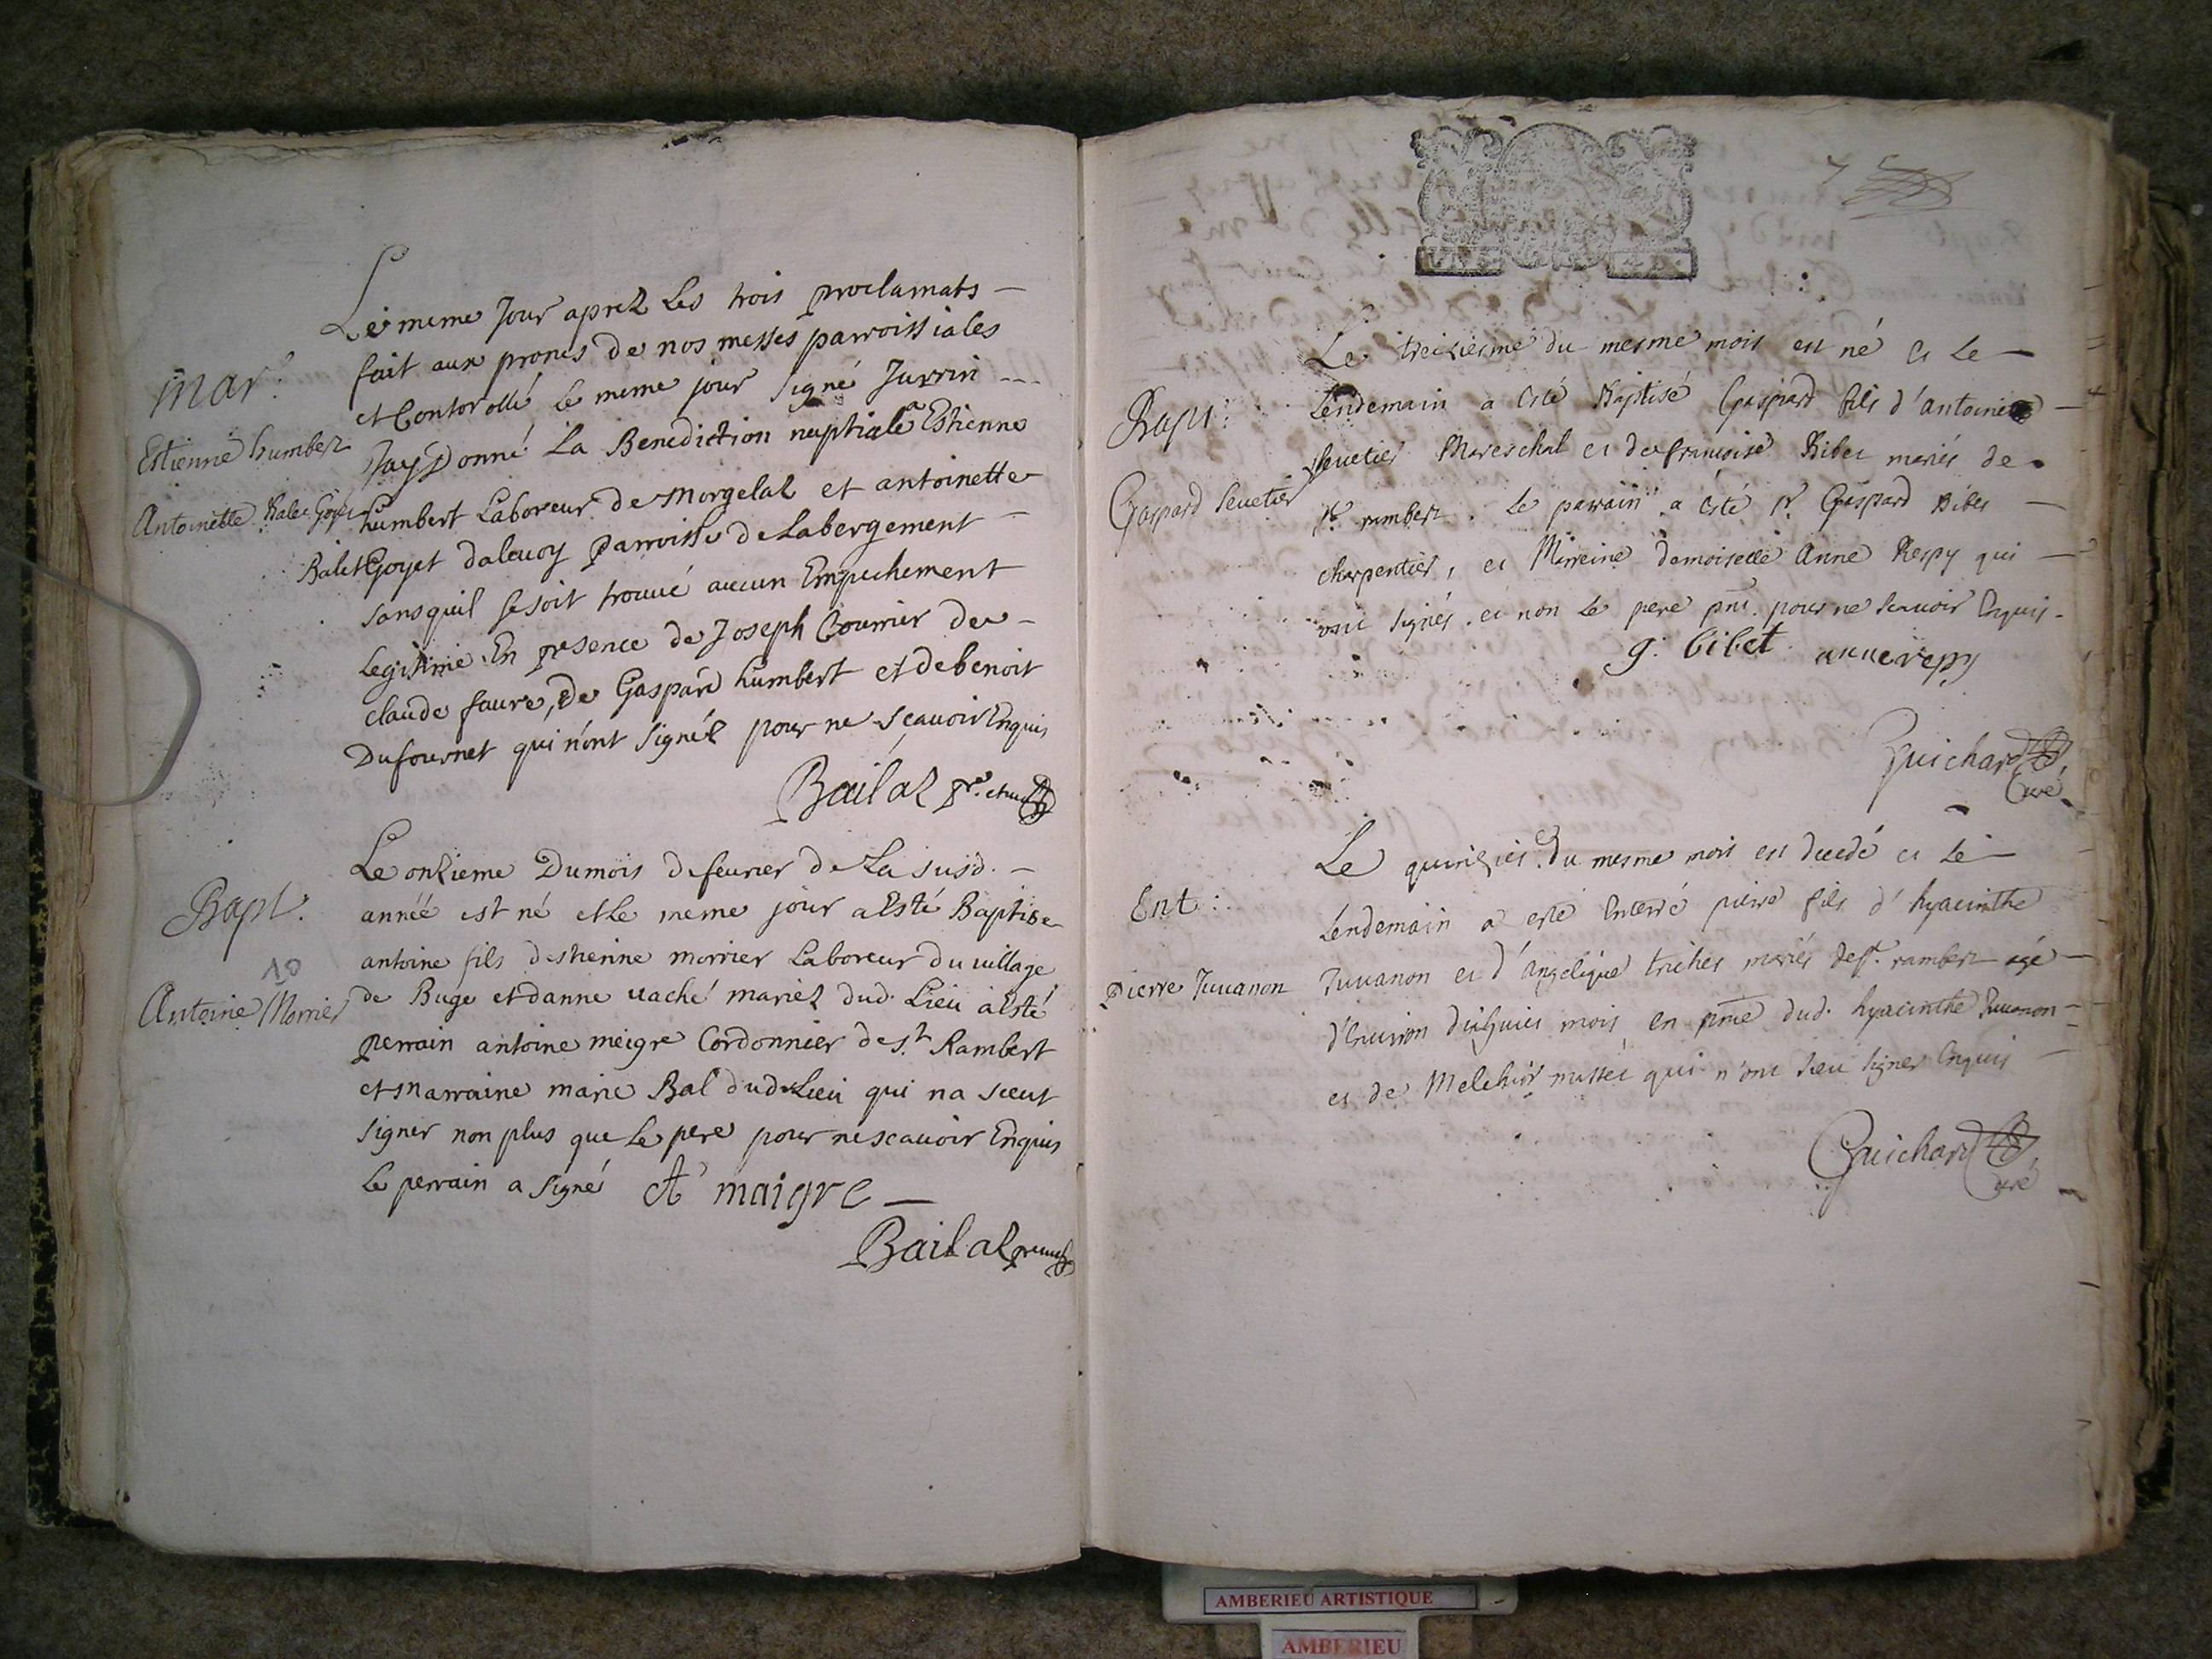 Le meme Jour aprez Les trois proclamats
fait aux prones de nos messes parroissiales
et Contorollé le meme jour signé Jurrin
Mar.
Estienne humbert
Jay Donné La Benediction nuptiale a Estienne
Antoinette Balet Goyet
humbert Laboreur de Morgelaz et antoinette
Balet Goyet daleuoy parroisse de Labergement
sans quil se soit trouué aucun Empechement
Legitime En presence de Joseph Courrier de
claude faure, de Gaspard humbert et de benoit
Dufournet qui n'ont signéz pour ne scauoir Enquis
Bailaz
Le onzieme Du mois de feurier de La susd.
Bapt.
année est né et Le meme jour a Esté Baptise
antoine fils destienne morrier Laboreur du uillage
10
Antoine Morrier
de Buge et danne uaché mariez dud. Lieu a Esté
perrain antoine meigre Cordonnier de st Rambert
et Marraine marie Bal dud Lieu qui na sceut
signer non plus que Le pere pour ne scauoir Enquis
Le perrain a signé A maigre
Bailaz
75
Le treiziesme du mesme mois est né et le
Bapt:
Lendemain a esté Baptisé Gaspard fils d'Antoine
Gaspard Seuetier
Seuetier Mareschal et de francoise Bibet mariés de
st rambert. Le parrain a esté sr Gaspard Bibet
charpentier, et Marreine demoiselle Anne Respy qui
ont signés. et non Le pere pnt. pour ne scauoir Enquis.
g. bibet anne repy
Guichard
Curé
Le quinzies. du mesme mois est decedé et le
Ent:
Lendemain a esté Enterré pierre fils d'hyacinthe
Pierre Juuanon
Juuanon et d'angelique trichet mariés de st. rambert agé
d'Enuiron dixhuict mois, en pnce dud. hyacinthe Juuanon
et de Melchior musset qui n'ont sceu signer Enquis
Guichard
Curé
AMBERIEU ARTISTIQUE
AMBERIEU